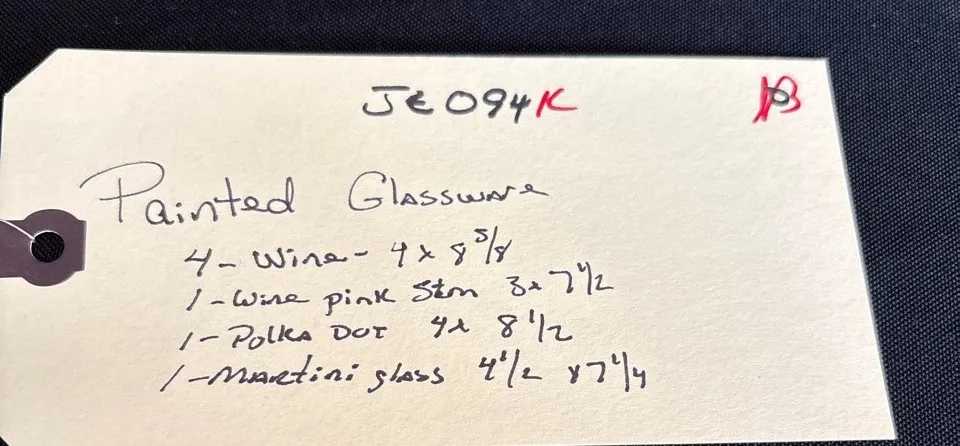 JE094K
Painted Glassware
4- Wine- 4 x 8 5/8
1-Wine pink Stem 3x 7 1/2
1-Polka Dot 4x 8 1/2
1-Martini glass 4 1/2 x 7 1/4